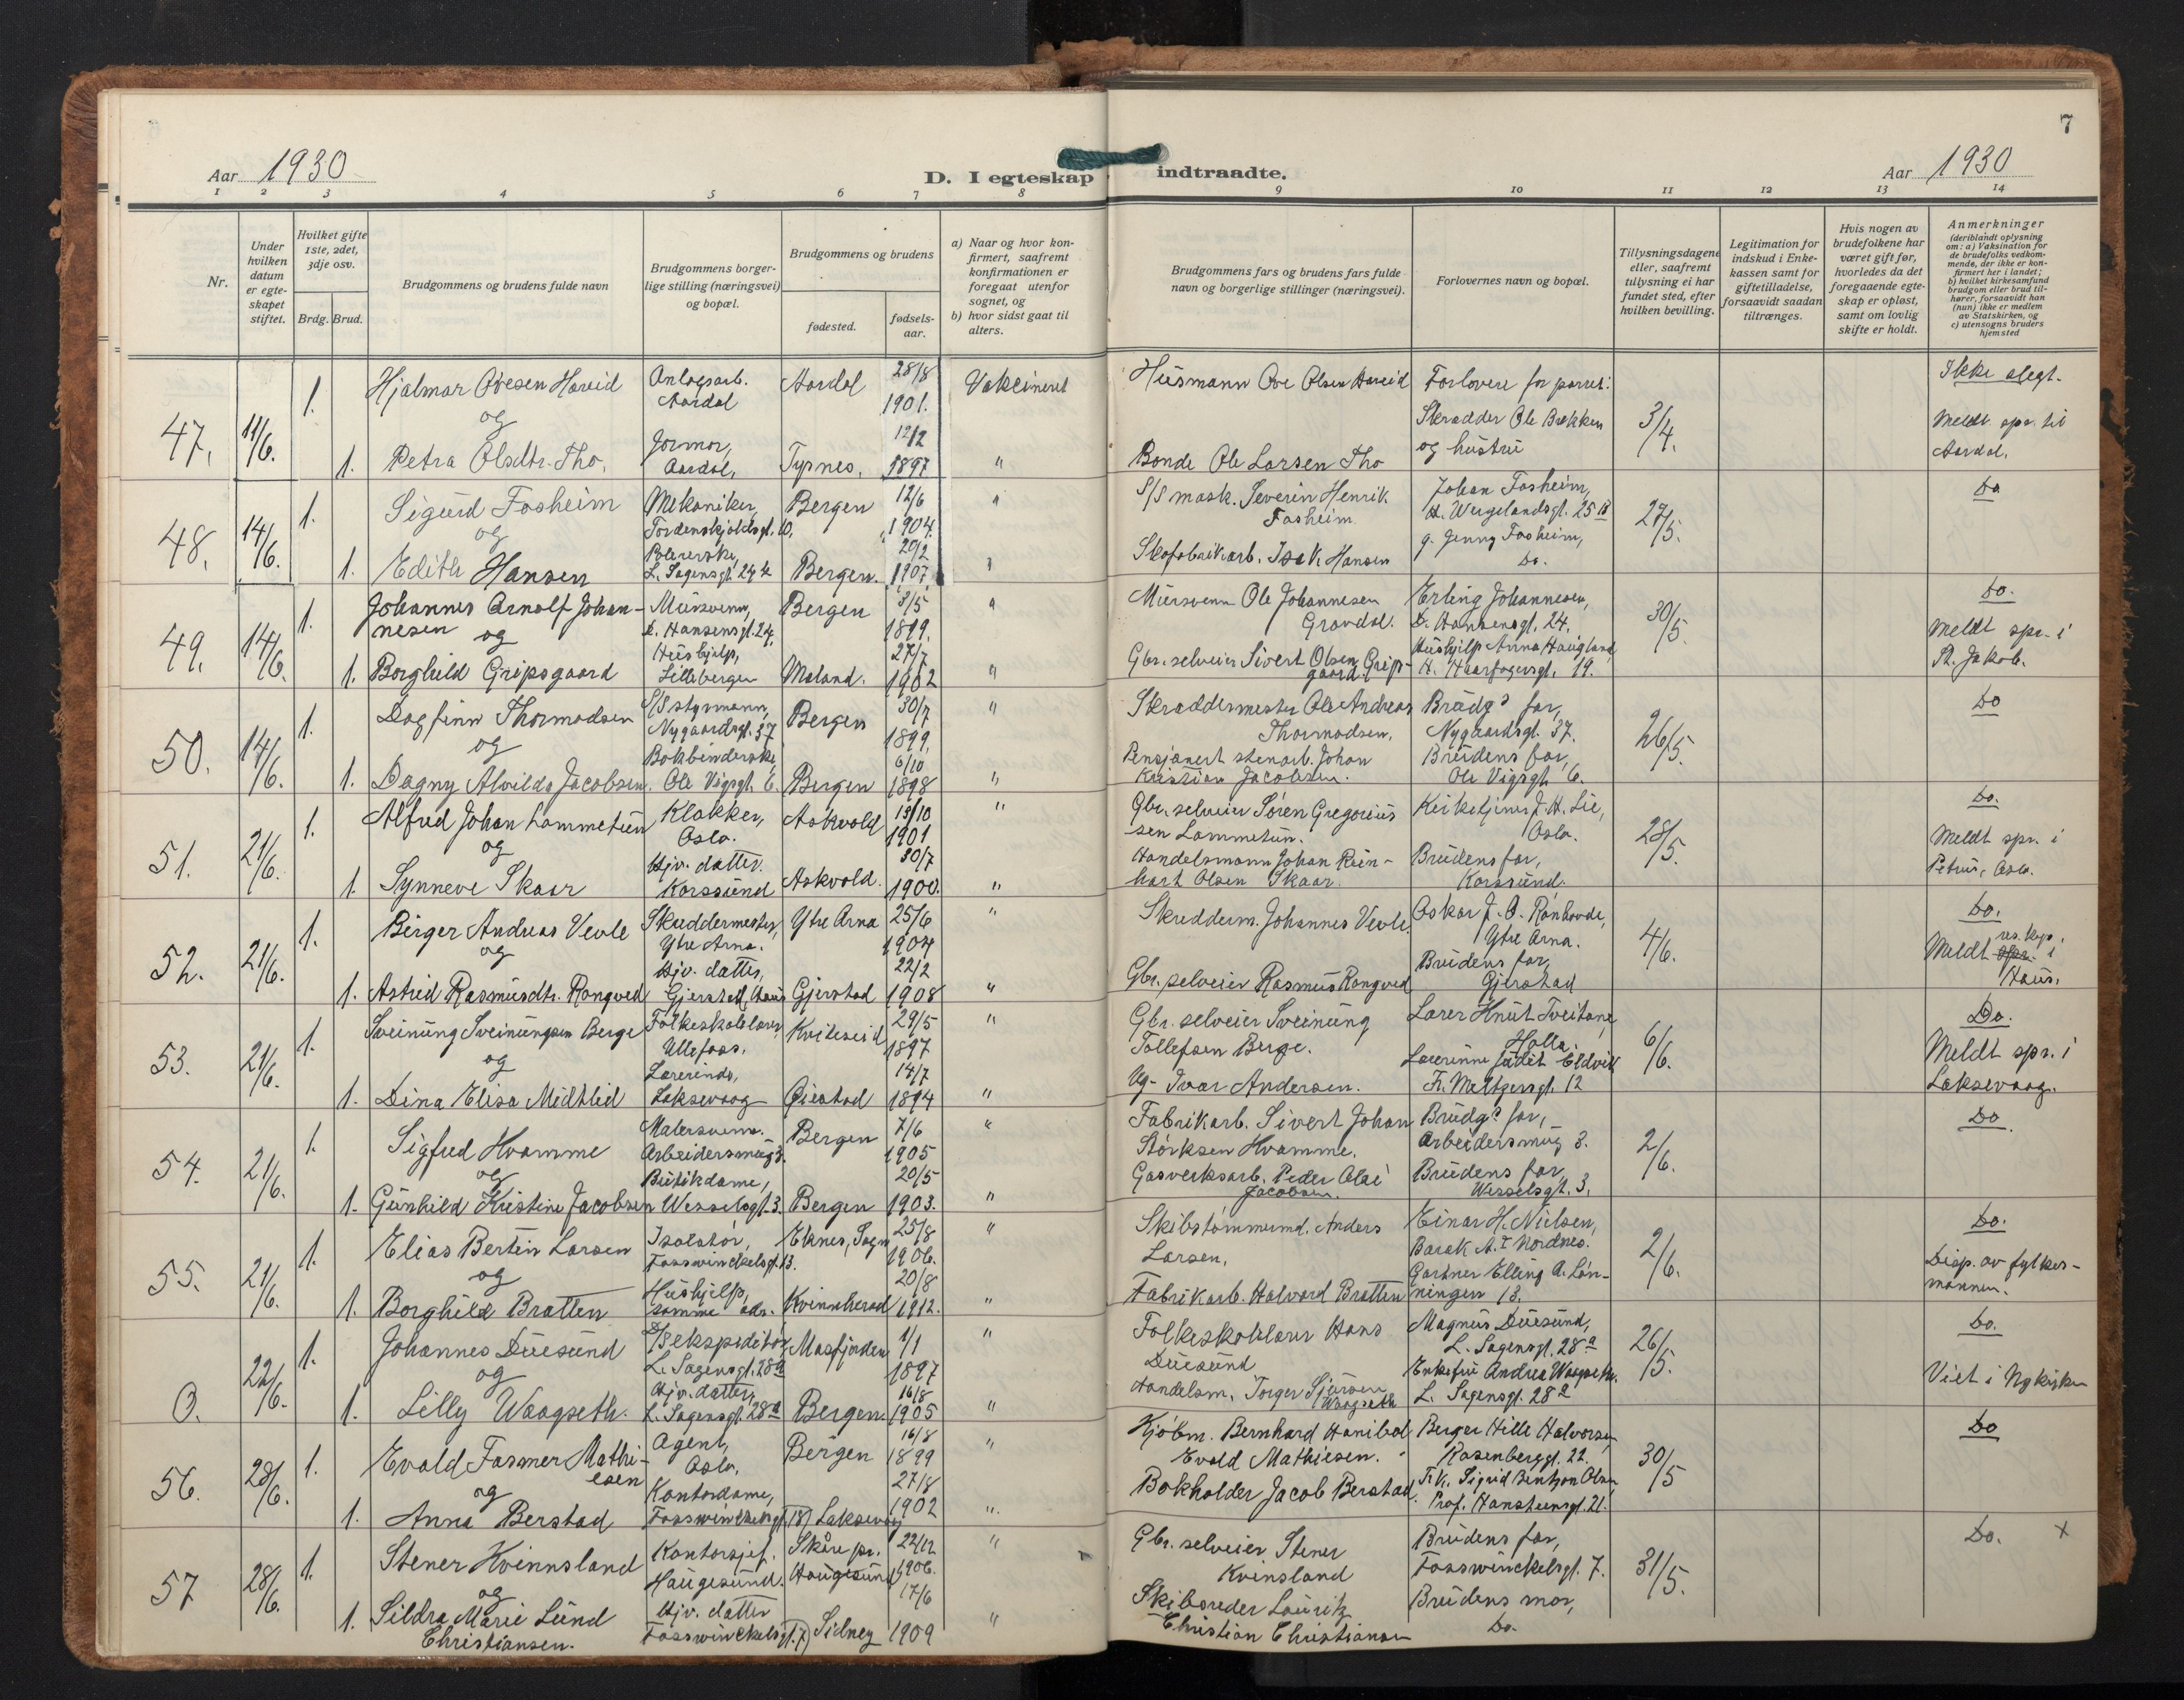 7
Aar 1930
D. I egteskap indtraadte.
Aar 1930
1 2 3 4 5 6 7 8 9 10 11 12 13 14
Nr.
Under hvilken datum er egteskapet stiftet.
Hvilket gifte 1ste, 2det, 3dje osv.
Brdg. Brud.
Brudgommens og brudens fulde navn
Brudgommens borgerlige stilling (næringsvei) og bopæl.
Brudgommens og brudens
fødested.
fødselsaar.
a) Naar og hvor konfirmert, saafremt konfirmationen er foregaat utenfor sognet, og
b) hvor sidst gaat til alters.
Brudgommens fars og brudens fars fulde navn og borgerlige stillinger (næringsvei).
Forlovernes navn og bopæl.
Tillysningsdagene eller, saafremt tillysning ei har fundet sted, efter hvilken bevilling.
Legitimation for indskud i Enkekassen samt for giftetilladelse, forsaavidt saadan tiltrænges.
Hvis nogen av brudefolkene har været gift før, hvorledes da det foregaaende egteskap er opløst, samt om lovlig skifte er holdt.
Anmerkninger
(deriblandt oplysning om: a) Vaksination for de brudefolks vedkommende, der ikke er konfirmert her i landet; b) hvilket kirkesamfund brudgom eller brud tilhører, forsaavidt han (hun) ikke er medlem av Statskirken, og c) utensogns bruders hjemsted
47. 11/6. 1. Hjalmar Ovesen Hareid Anlegsarb. Aardal Aardal 28/8 1901. Vakcineret Husmann Ove Olsen Hareid Forlovere for parret: 3/4. Ikke slegt.
og Skrædder Ole Bækken Meldt spr. til
1. Petra Olsdtr. Tho. Jormor, Aardal, Tysnes. 12/2 1897 " Bonde Ole Larsen Tho og hustru Aardal.
48. 14/6. 1. Sigurd Fosheim Mekaniker, Tordenskjoldsgt. 10. Bergen 12/6 1904. " S/S mask. Severin Henrik Fosheim Johan Fosheim, H. Wergelandsgt. 25 B 27/5. Do
og
1. Edith Hansen Polererske, L. Sagensgt. Bergen. 20/2 1907. " Skofabrikarb. Isak Hansen g. Jenny Fosheim, Do.
49. 14/6. 1. Johannes Arnolf Johannesen Mursvenn, D. Hansensgt. 24. Bergen 3/5 1899. " Mursvenn Ole Johannesen Gravdal. Erling Johannesen, D. Hansensgt. 24. 30/5. Do.
og Meldt spr. i
1. Borghild Gripsgaard Hushjelp, Lillebergen Meland. 27/7 1902 " Gbr. selveier Sivert Olsen Gripsgaard Hushjelp Anna Haugland, H. Haarfagersgt. 19. St. Jakob.
50. 14/6. 1. Dagfinn Thormodsen S/S styrmann, Nygaardsgt. 37 Bergen 30/7 1899. " Skreddermester Ole Andreas Thormodsen. Brudgs far, Nygaardsgt. 37. 26/5. Do
og
1. Dagny Alvilda Jacobsen. Bokbinderske, Ole Vigsgt. 6. Bergen 6/10 1898 " Pensjonert stenarb. Johan Kristian Jacobsen. Brudens far, Ole Vigsgt. 6.
51. 21/6. 1. Alfred Johan Lammetun Klokker, Oslo. Askvold 13/10 1901 " Gbr. selveier Søren Gregoriussen Lammetun. Kirketjener J. H. Lie, Oslo. 28/5. Do.
og Meldt spr. i
1. Synneve Skaar Hjv. datter. Korssund Askvold. 30/7 1900. " Handelsmann Johan Reinhart Olsen Skaar. Brudens far, Korssund. Petrus, Oslo.
52. 21/6. 1. Birger Andreas Vevle Skreddermester, Ytre Arna. Ytre Arna 25/6 1904 " Skredderm. Johannes Vevle Oskar J. O. Rønhovde, Ytre Arna. 4/6. Do.
og Meldt res. kap. i
1. Astrid Rasmusdtr. Rongved Hjv. datter, Gjerstad, Haus Gjerstad 22/2 1908 " Gbr. selveier Rasmus Rongved Brudens far, Gjerstad Haus.
53. 21/6. 1. Sveinung Sveinungsen Berge Folkeskolelærer, Ullefoss. Kviteseid 29/5 1897 " Gbr. selveier Sveinung Tollefsen Berge. Lærer Knut Tveitane, Holla. 6/6. Do.
og Meldt spr. i
1. Dina Elisa Midtlid Lærerinde, Laksevaag Gjerstad 14/7 1894 " Ug- Ivar Andersen. Lærerinne Judit Eldvik Fr. Meltzersgt. 12 Laksevaag.
54. 21/6. 1. Sigfred Hvamme Malersvenn. Arbeidersmug 3. Bergen 7/6 1905 " Fabrikarb. Sivert Johan Størksen Hvamme. Brudgs far, Arbeidersmug 3. 2/6. Do.
og
1. Gunhild Kristine Jacobsen Butikdame, Wesselsgt. 3. Bergen 20/5 1903. " Gasverksarb. Peder Olai Jacobsen. Brudens far Wesselsgt. 3.
55. 21/6. 1. Elias Bertin Larsen Isolatør, Fosswinckelsgt. 13. Eknes, Sogn 25/8 1906. " Skibstømmermd. Anders Larsen. Einar H. Nielsen, Barak A. I Nordnes. 2/6. Do.
og Disp. av fylkesmannen.
1. Borghild Bratten Hushjelp, samme adr. Kvinnherad 20/8 1912. " Fabrikarb. Halvard Bratten Gartner Elling A. Lønningen 13.
0. 22/6. 1. Johannes Duesund D/S ekspeditør, L. Sagensgt. 28a Masfjorden 1/1 1897 " Folkeskolelærer Hans Duesund Magnus Duesund, L. Sagensgt. 28a 26/5. Do.
og Viet i Nykirken
1. Lilly Waagseth. Hjv. datter, L. Sagensgt. 28a Bergen. 16/8 1905 " Handelsm. Torger Sjursen Waagseth Enkefru Andrea Waagseth. L. Sagensgt. 28a
56. 28/6. 1. Evald Fasmer Mathiesen Agent, Oslo. Bergen 16/8 1899 " Kjøbm. Bernhard Hanibal Evald Mathiesen. Berger Hille Halvorsen Rosenberggt. 22. 30/5 Do
og
1. Anna Berstad Kontordame, Fosswinckelsgt. 18) Laksevaag 27/8 1902 " Bokholder Jacob Berstad. Frk. Sigrid Bentzon Olsen Prof. Hansteensgt. 21.
57 28/6. 1. Stener Kvinnsland Kontorsjef. Haugesund. Skåre pr. Haugesund 22/12 1906. " Gbr. selveier Stener Kvinsland Brudens far, Fosswinckelsgt. 7. 31/5. Do. x
og
1. Sildra Marie Lund Christiansen. Hjv. datter Fosswinckelsgt. 7) Sidney 17/6 1909 " Skibsreder Lauritz Christian Christiansen Brudens mor, Do.